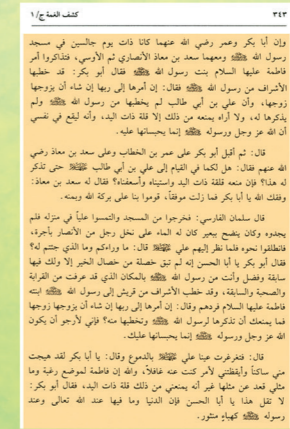 ٣٤٣ كشف الغمة ج/١
وإن أبا بكر وعمر رضي الله عنهما كانا ذات يوم جالسين في مسجد
رسول الله ﷺ ومعهما سعد بن معاذ الأنصاري ثم الأوسي، فتذاكروا أمر
فاطمة عليها السلام بنت رسول الله ﷺ فقال أبو بكر: قد خطبها
الأشراف من رسول الله ﷺ فقال: إن أمرها إلى ربها إن شاء أن يزوجها
زوجها، وأن علي بن أبي طالب لم يخطبها من رسول الله ﷺ ولم
يذكرها له، ولا أراه يمنعه من ذلك إلا قلة ذات اليد، وأنه ليقع في نفسي
أن الله عز وجل ورسوله ﷺ إنما يحبسانها عليه.
قال: ثم أقبل أبو بكر على عمر بن الخطاب وعلى سعد بن معاذ رضي
الله عنهم فقال: هل لكما في القيام إلى علي بن أبي طالب ﷺ حتى تذكر
له هذا؟ فإن منعه قلة ذات اليد واسيناه وأسعفناه؟ فقال له سعد بن معاذ:
وفقك الله يا أبا بكر فما زلت موفقاً، قوموا بنا على بركة الله ويمنه.
قال سلمان الفارسي: فخرجوا من المسجد والتمسوا علياً في منزله فلم
يجدوه وكان ينضح ببعير كان له الماء على نخل رجل من الأنصار بأجرة،
فانطلقوا نحوه فلما نظر إليهم علي ﷺ قال: ما وراءكم وما الذي جئتم له؟
فقال أبو بكر يا أبا الحسن إنه لم تبق خصلة من خصال الخير إلا ولك فيها
سابقة وفضل وأنت من رسول الله ﷺ بالمكان الذي قد عرفت من القرابة
والصحبة والسابقة، وقد خطب الأشراف من قريش إلى رسول الله ﷺ ابنته
فاطمة عليها السلام فردهم وقال: إن أمرها إلى ربها إن شاء أن يزوجها زوجها
فما يمنعك أن تذكرها لرسول الله ﷺ وتخطبها منه؟ فإني لأرجو أن يكون
الله عز وجل ورسوله ﷺ إنما يحبسانها عليك.
قال: فتغرغرت عينا علي ﷺ بالدموع وقال: يا أبا بكر لقد هيجت
مني ساكناً وأيقظتني لأمر كنت عنه غافلاً، والله إن فاطمة لموضع رغبة وما
مثلي قعد عن مثلها غير أنه يمنعني من ذلك قلة ذات اليد، فقال أبو بكر:
لا تقل هذا يا أبا الحسن فإن الدنيا وما فيها عند الله تعالى وعند
رسوله ﷺ كهباء منثور.